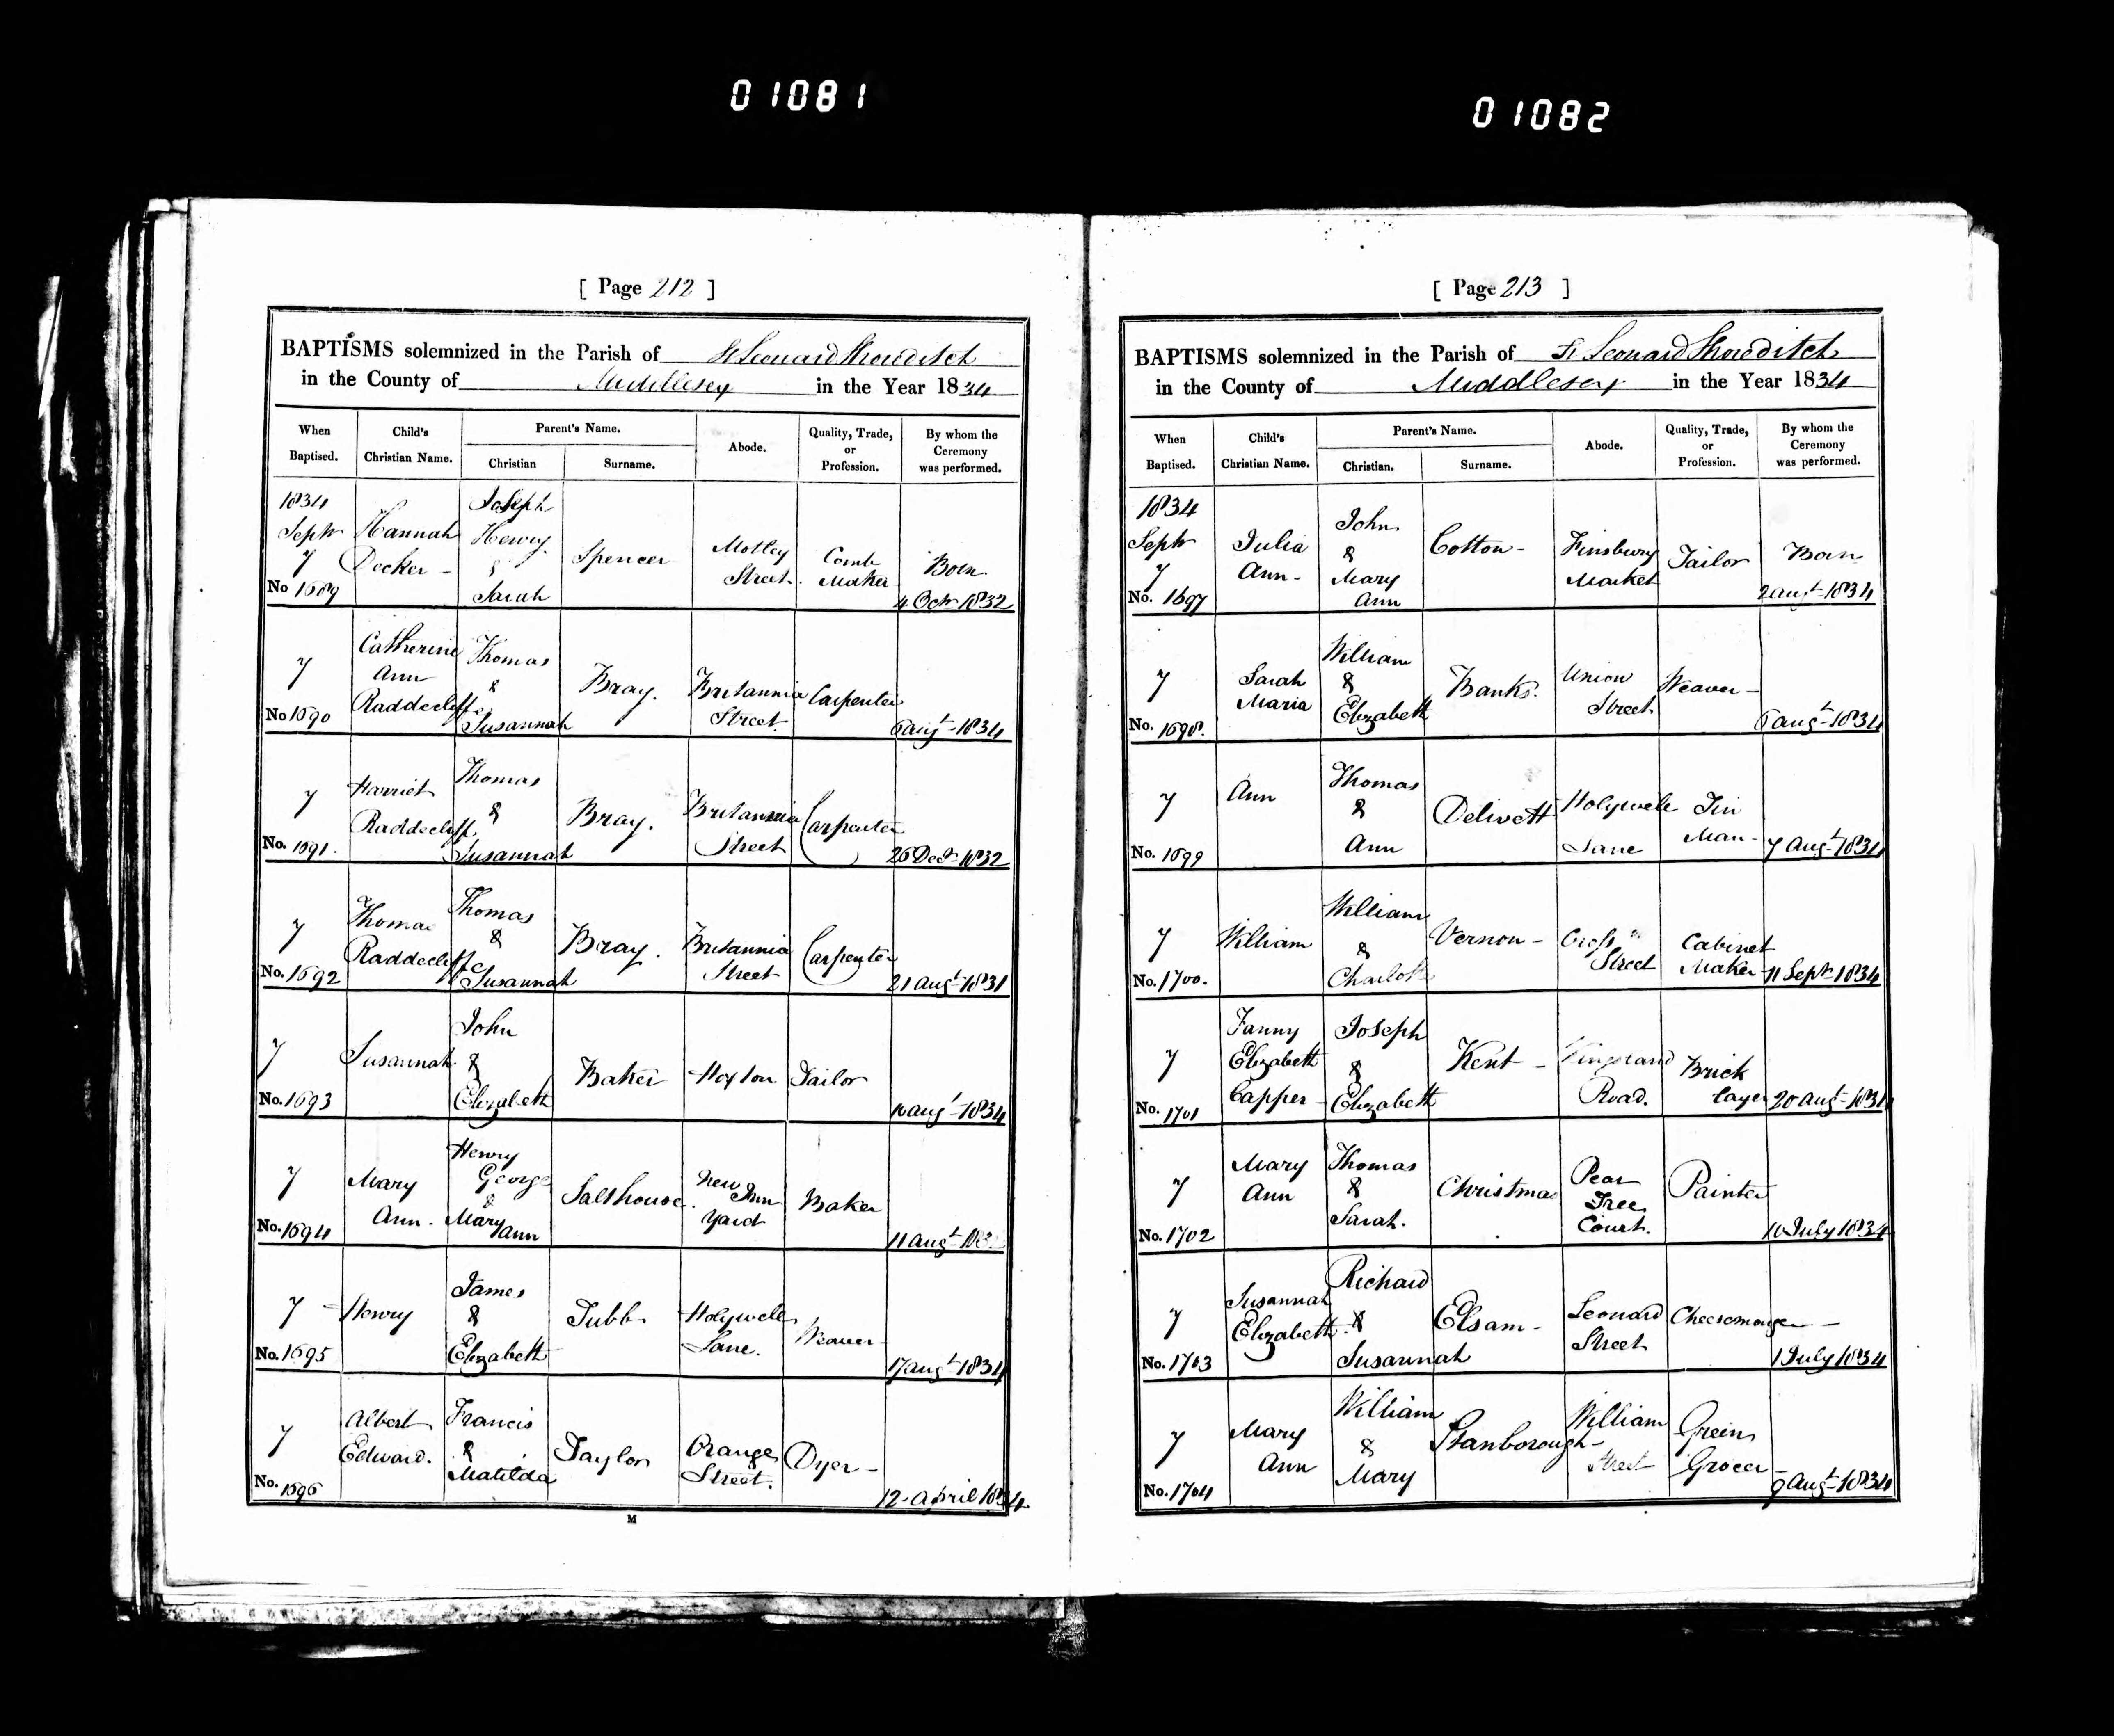 01081
01082
[ Page 212 ]
BAPTISMS solemnized in the Parish of St Leonard Shoreditch
in the County of Middlesex in the Year 1834
When Baptised.
Child's Christian Name.
Parent's Name.
Christian
Surname.
Abode.
Quality, Trade, or Profession.
By whom the Ceremony was performed.
1834
Septr
7
No 1689
Hannah
Decker -
Joseph
Henry
&
Sarah
Spencer
Motley
Street.
Comb
Maker
Born
4 Octr 1832
7
No 1690
Catherine
Ann
Raddecliffe
Thomas
&
Susannah
Bray.
Britannia
Street.
Carpenter
6 Augt 1834
7
No. 1691.
Harriet
Raddecliff
Thomas
&
Susannah
Bray.
Britannia
Street
Carpenter
26 Decr 1832
7
No. 1692
Thomas
Raddecliffe
Thomas
&
Susannah
Bray.
Britannia
Street
Carpenter
21 Augt 1831
7
No. 1693
Susannah
John
&
Elizabeth
Baker
Hoxton
Tailor
10 Augt 1834
7
No. 1694
Mary
Ann.
Henry
George
&
Mary Ann
Salthouse
New Inn
Yard
Baker
11 Augt
7
No. 1695
Henry
James
&
Elizabeth
Tubb
Holywell
Lane.
Weaver -
17 Augt 1834
7
No. 1696
Albert
Edward.
Francis
&
Matilda
Taylor
Orange
Street.
Dyer -
12 April 1834
M
[ Page 213 ]
BAPTISMS solemnized in the Parish of St Leonard Shoreditch
in the County of Middlesex in the Year 1834
When Baptised.
Child's Christian Name.
Parent's Name.
Christian.
Surname.
Abode.
Quality, Trade, or Profession.
By whom the Ceremony was performed.
1834
Septr
7
No. 1697
Julia
Ann -
John
&
Mary
Ann
Cotton -
Finsbury
Market
Tailor
Born
2 Augt 1834
7
No. 1698.
Sarah
Maria
William
&
Elizabeth
Banks.
Union
Street
Weaver -
6 Augt 1834
7
No. 1699
Ann
Thomas
&
Ann
Delivett
Holywell
Lane
Tin
Man -
7 Augt 1834
7
No. 1700.
William
William
&
Charlotte
Vernon -
Cross
Street
Cabinet
Maker
11 Septr 1834
7
No. 1701
Fanny
Elizabeth
Capper -
Joseph
&
Elizabeth
Kent -
Kingsland
Road.
Brick
layer
20 Augt 1831
7
No. 1702
Mary
Ann
Thomas
&
Sarah.
Christmas
Pear
Tree
Court.
Painter
10 July 1834
7
No. 1703
Susannah
Elizabeth.
Richard
&
Susannah
Elsam -
Leonard
Street
Cheesemonger -
1 July 1834
7
No. 1704
Mary
Ann
William
&
Mary
Stanborough -
William
Street
Green
Grocer -
9 Augt 1834